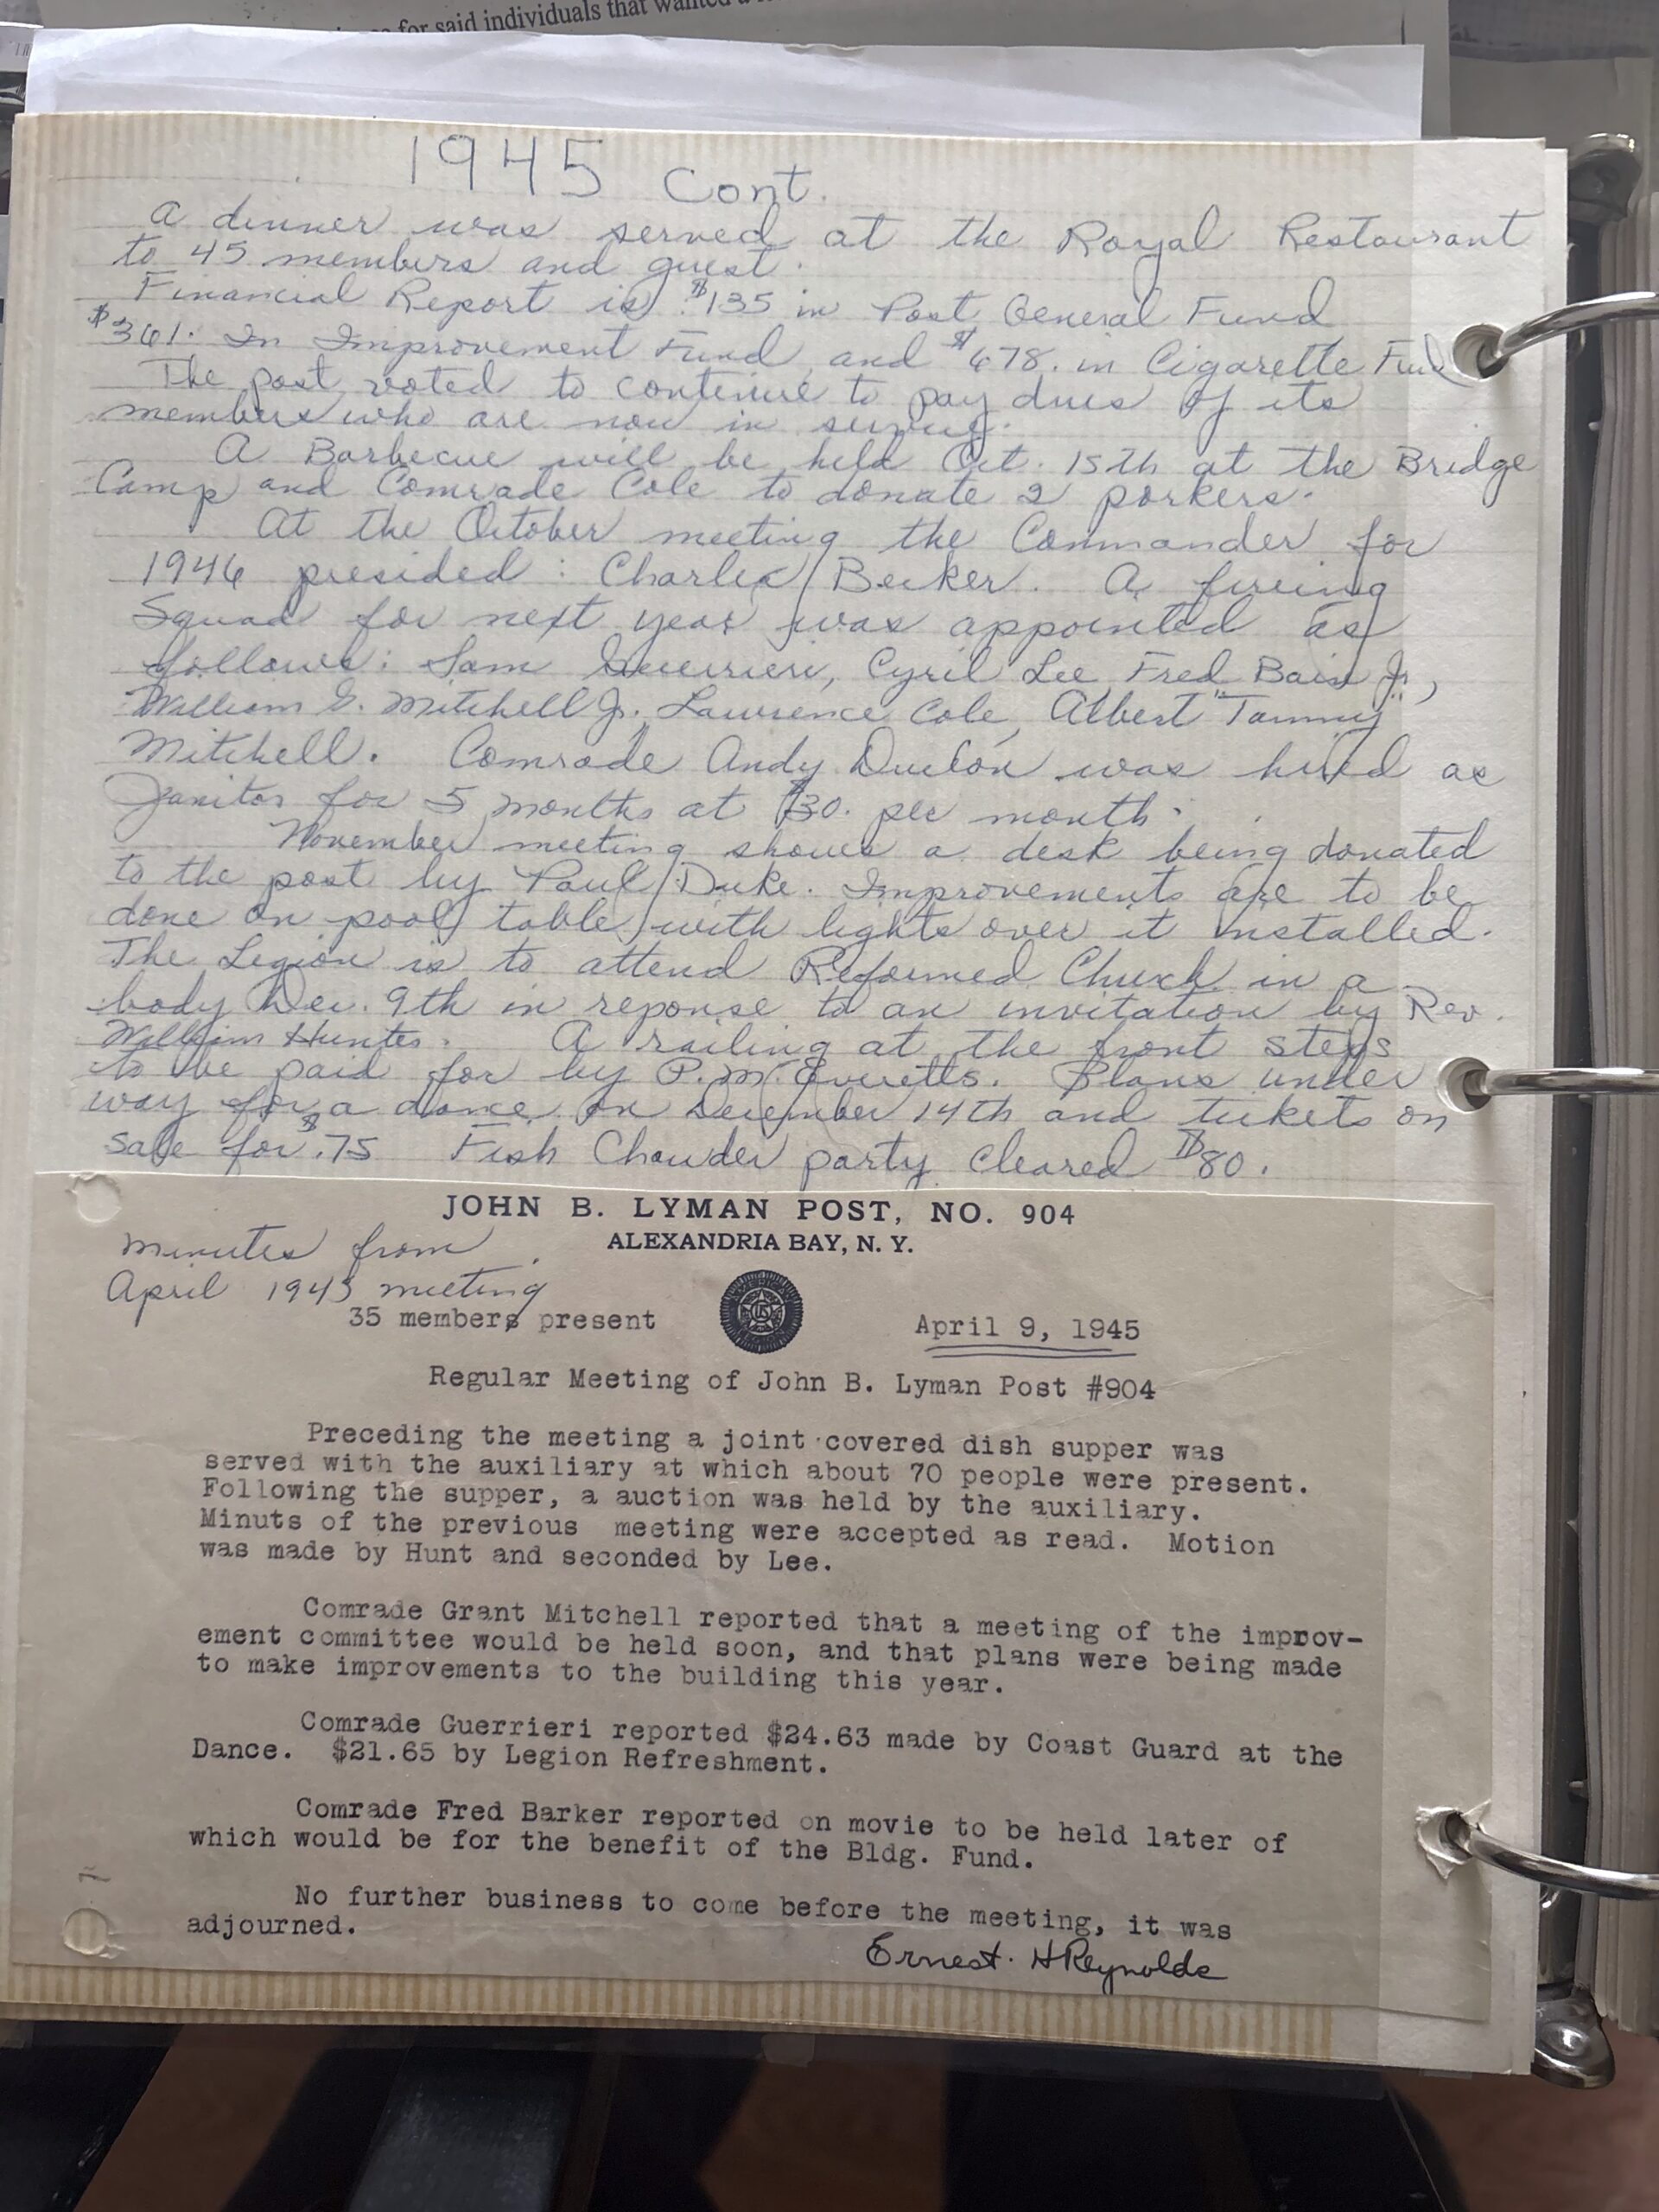 for said individuals that wanted
1945 Cont.
A dinner was served at the Royal Restaurant
to 45 members and guest.
Financial Report is $135 in Post General Fund
$361. In Improvement Fund and $678. in Cigarette Fund
The post voted to continue to pay dues of its
members who are now in service.
A Barbecue will be held Oct. 15th at the Bridge
Camp and Comrade Cole to donate 2 porkers.
At the October meeting the Commander for
1946 presided: Charles Becker. A fireing
Squad for next year was appointed as
follows: Sam Guerrieri, Cyril Lee, Fred Bain Jr.,
William G. Mitchell Jr., Lawrence Cole, Albert "Tammy"
Mitchell. Comrade Andy was hired as
Janitor for 5 months at $30. per month.
November meeting shows a desk being donated
to the post by Paul Duke. Improvements are to be
done on pool table with lights over it installed.
The Legion is to attend Reformed Church in a
body Dec. 9th in reponse to an invitation by Rev.
William Hunter. A railing at the front steps
to be paid for by P.M. Everetts. Plans under
way for a dance on December 14th and tickets on
sale for $.75 Fish Chowder party cleared $80.
JOHN B. LYMAN POST, NO. 904
ALEXANDRIA BAY, N. Y.
minutes from
April 1945 meeting
35 members present
April 9, 1945
Regular Meeting of John B. Lyman Post #904
Preceding the meeting a joint covered dish supper was
served with the auxiliary at which about 70 people were present.
Following the supper, a auction was held by the auxiliary.
Minuts of the previous meeting were accepted as read. Motion
was made by Hunt and seconded by Lee.
Comrade Grant Mitchell reported that a meeting of the improv-
ement committee would be held soon, and that plans were being made
to make improvements to the building this year.
Comrade Guerrieri reported $24.63 made by Coast Guard at the
Dance. $21.65 by Legion Refreshment.
Comrade Fred Barker reported on movie to be held later of
which would be for the benefit of the Bldg. Fund.
No further business to come before the meeting, it was
adjourned.
Ernest. H Reynolds